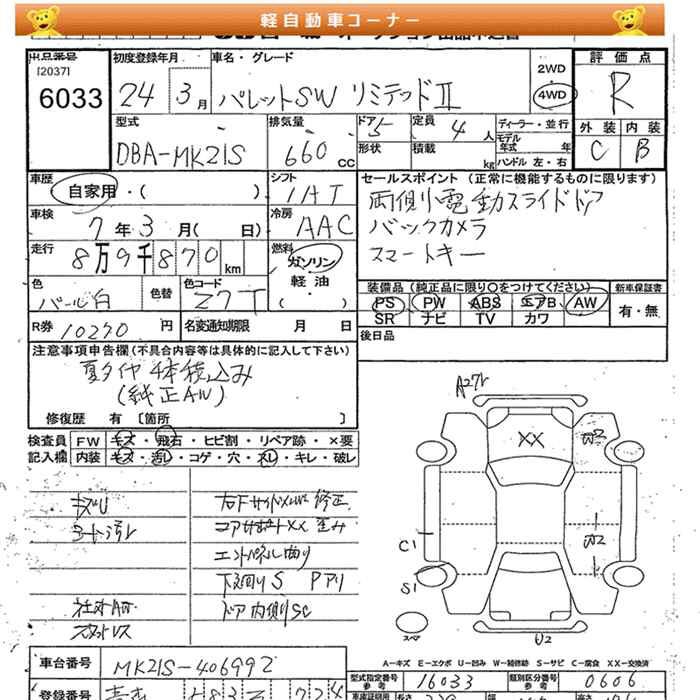 軽自動車コーナー
出品番号
[2037]
6033
初度登録年月
24 3月
車名・グレード
パレットSW リミテッドⅡ
2WD
4WD
評価点
R
外装 内装
C B
型式
DBA-MK21S
排気量
660 CC
ドア 5
形状
定員 4人
積載 kg
ディーラー・並行
モデル
年式 年
ハンドル 左・右
車歴
自家用・( )
シフト
IAT
車検
7年3月( 日)
冷房
AAC
走行
8万9千870km
燃料
ガソリン
軽油
( )
セールスポイント(正常に機能するものに限ります)
両側電動スライドドア
バックカメラ
スマートキー
色
パール白
色替
色コード
Z7T
装備品(純正品に限り○をつけてください)
PS PW ABS エアB AW
SR ナビ TV カワ
新車保証書
有・無
R券 10270円
名変通知期限 月 日
後日品
注意事項申告欄(不具合内容等は具体的に記入して下さい)
夏タイヤ 4本積込み
(純正AW)
修復歴 有 [箇所 ]
検査員 FW キズ・飛石・ヒビ割・リペア跡・×要
記入欄 内装 キズ・汚レ・コゲ・穴・スレ・キレ・破レ
キズU
シート汚レ
修正
コアサポートXX 歪み
エンドパネル曲り
下廻りS Pアリ
ドア内側SC
A27r
XX
U2
U2
C1
S1
スペア
U2
A-キズ E-エクボ U-凹み W-補修跡 S-サビ C-腐食 XX-交換済
車台番号 MK21S-406992
型式指定番号 参考 16033
類別区分番号 参考 0606
登録番号